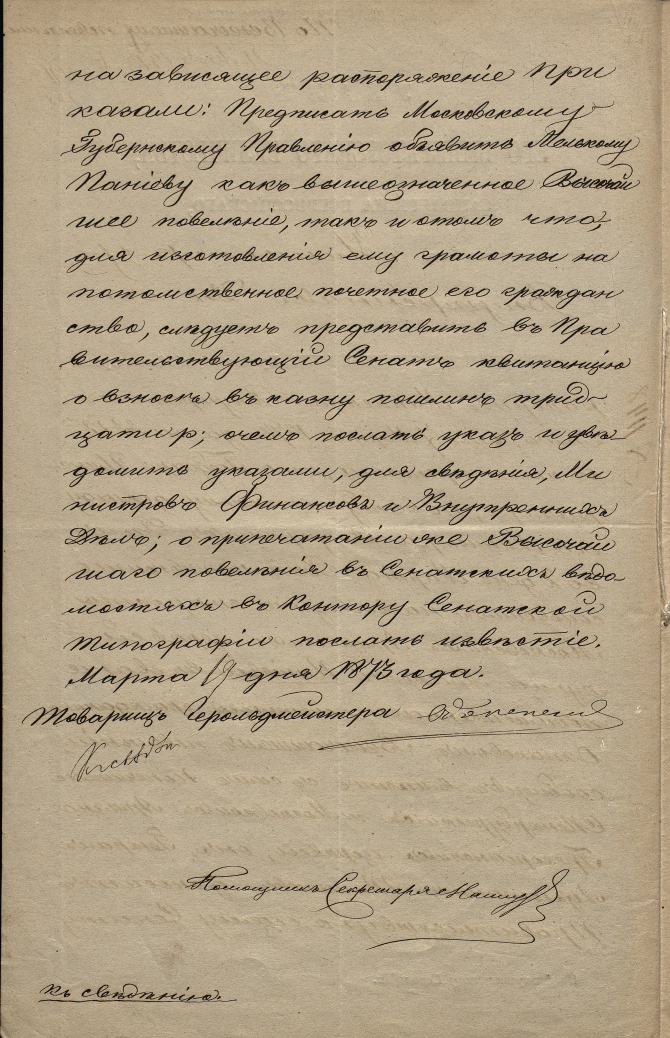 на зависящее распоряженіе При
казали: Предписать Московскому
Губернскому Правленію объявить Мелькому
Паніеву какъ вышеозначенное Высочай
шее повелѣніе, такъ и отомъ что,
для изготовленія ему грамоты на
потомственное почетное его граждан
ство, слѣдуетъ представить въ Пра
вительствующій Сенатъ квитанцію
о взносѣ въ казну пошлинъ трид-
цати р; очемъ послать указъ и увѣ
домить указами, для свѣдѣнія, Ми
нистровъ Финансовъ и Внутреннихъ
Дѣлъ; о припечатаніи же Высочай
шаго повелѣнія въ Сенатскихъ вѣдо
мостяхъ въ Контору Сенатской
Типографіи послать извѣстіе.
Марта 19 дня 1873 года.
Товарищъ Герольдмейстера
Помощникъ Секретаря
къ свѣдѣнію.